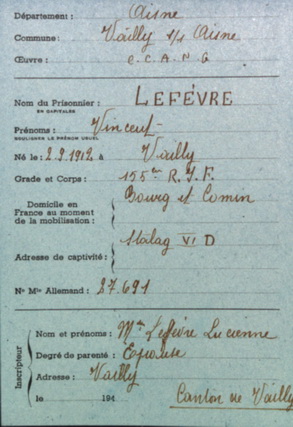 Département : Aisne
Commune : Vailly s/s Aisne
Œuvre : C.C.A.N.G
Nom du Prisonnier : LEFÉVRE
EN CAPITALES
Prénoms : Vincent
SOULIGNER LE PRÉNOM USUEL
Né le : 2.9.1912 à Vailly
Grade et Corps : 155e R.I.F.
Domicile en Bourg et Comin
France au moment
de la mobilisation :
Stalag VI D
Adresse de captivité :
No Mle Allemand : 27.691
Inscripteur
Nom et prénoms : Mme Lefèvre Lucienne
Degré de parenté : Epouse
Adresse : Vailly
le 194
Canton de Vailly